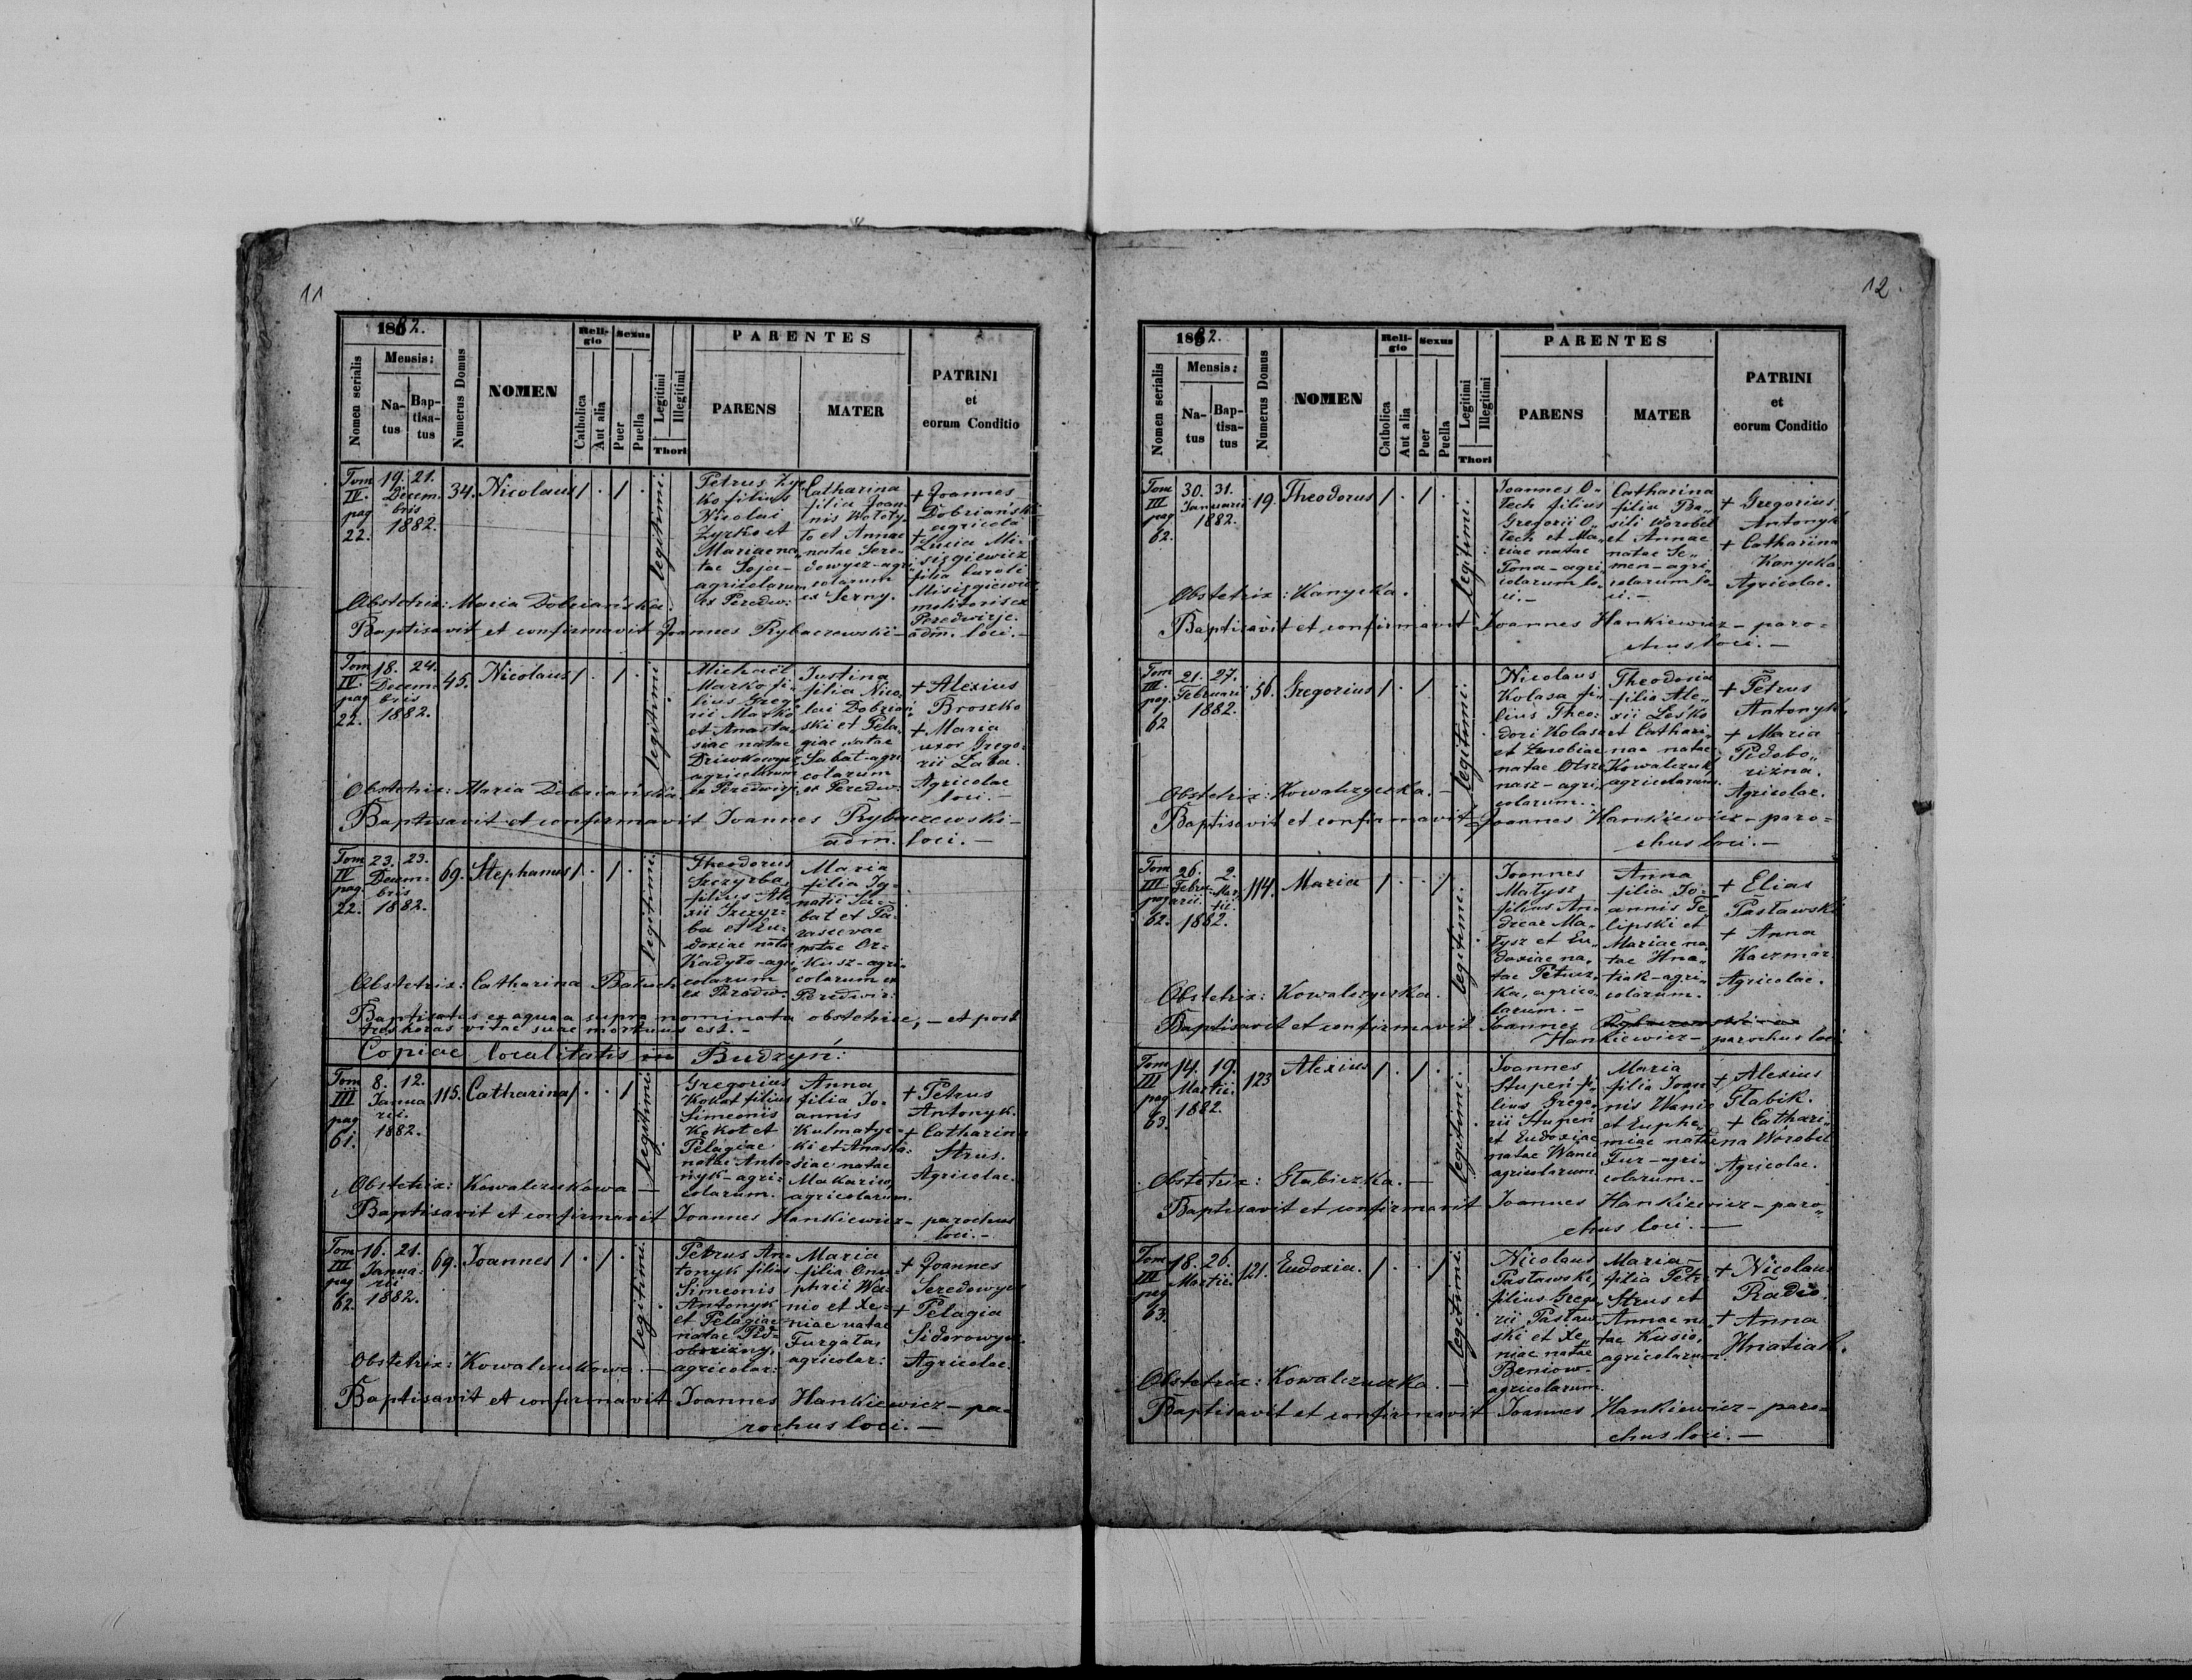 11
1882.
Nomen serialis
Mensis:
Natus
Baptisatus
Numerus Domus
NOMEN
Religio
Catholica
Aut alia
Sexus
Puer
Puella
Legitimi
Illegitimi
Thori
PARENTES
PARENS
MATER
PATRINI
et
eorum Conditio
Tom IV. pag 22.
19. 21. Decembris 1882.
34.
Nicolaus
/ . / .
legitimi.
Petrus Zyr-
ko filius
Nicolai
Zyrko et
Mariae na-
tae Soja-
agricolarum
ex Peredw:
Catharina
filia Joan-
nis Wołoty-
to et Annae
natae Sere-
dowycz-agri-
colarum
ex Serny.
+ Joannes
Dobriański
agricola
+ Luzia Mi-
sięgiewicz
filia Caroli
Misięgiewicz
molitoris ex
Peredwirje.
Obstetrix: Maria Dobriańska.
Baptisavit et confirmavit Joannes Rybaczewski - adm. loci. -
Tom IV. pag 22.
18. 24. Decembris 1882.
45.
Nicolaus
/ . / .
legitimi
Michaël
Marko fi-
lius Grego-
rii Marko
et Anasta-
siae natae
Dziwkowycz
agricolarum
ex Peredwirje
Justina
filia Nico-
lai Dobriań-
ski et Pela-
giae natae
Sabat-agri
colarum
ex Peredw:
+ Alexius
Broszko
+ Maria
uxor Grego-
rii Łaba.
Agricolae
loci. -
Obstetrix: Maria Dobriańska
Baptisavit et confirmavit Joannes Rybaczewski -
adm. loci. -
Tom IV pag. 22.
23. 23. Decembris 1882.
69.
Stephanus
/ . / .
legitimi.
Theodorus
Szczyrba,
filius Ale-
xii Szczyr-
ba et Eu-
doxiae natae
Kadyło-agri-
colarum
ex Peredw.
Maria
filia Ig-
natii Sa-
bat et Pa-
rascevae
natae Or-
kusz-agri-
colarum ex
Peredwir:
Obstetrix: Catharina Batuch
Baptisatus ex aqua a supra nominata obstetrice, - et post
tres horas vitae suae mortuus est. -
Copiae localitatis in Budzyń:
Tom III pag 61.
8. 12. Januarii. 1882.
115.
Catharina
/ . . /
legitimi.
Gregorius
Kokot filius
Simeonis
Kokot et
Pelagiae
natae Anto-
nyk-agri-
colarum.
Anna
filia Jo-
annis
Kulmatyc-
ki et Anasta-
siae natae
Makario,
agricolarum.
+ Petrus
Antonyk.
+ Catharina
Strus.
Agricolae.
Obstetrix: Kowalczukowa -
Baptisavit et confirmavit Joannes Hankiewicz - parochus
loci. -
Tom III pag 62.
16. 21. Januarii 1882.
69.
Joannes
/ . / .
legitimi.
Petrus An-
tonyk filius
Simeonis
Antonyk
et Pelagiae
natae Pid-
obrizny,
agricolar:
Maria
filia Onu-
phrii Wa-
nio et Xe-
niae natae
Furgała,
agricolar:
+ Joannes
Seredowycz
+ Pelagia
Sidorowycz.
Agricolae.
Obstetrix: Kowalczukowa. -
Baptisavit et confirmavit Joannes Hankiewicz - pa-
rochus loci. -
12
1882.
Nomen serialis
Mensis:
Natus
Baptisatus
Numerus Domus
NOMEN
Religio
Catholica
Aut alia
Sexus
Puer
Puella
Legitimi
Illegitimi
Thori
PARENTES
PARENS
MATER
PATRINI
et
eorum Conditio
Tom III pag 62.
30. 31. Januarii 1882.
19.
Theodorus
/ . / .
legitimi.
Joannes O-
tech filius
Gregorii O-
tech et Ma-
riae natae
Pona-agri-
colarum lo-
ci. -
Catharina
filia Ba-
sili Worobel
et Annae
natae Se-
men-agri-
colarum lo-
ci. -
+ Gregorius
Antonyk
+ Catharina
Kanycka
Agricolae.
Obstetrix: Kanycka.
Baptisavit et confirmavit Joannes Hankiewicz - paro-
chus loci. -
Tom III. pag. 62
21. 27. Februarii 1882.
56.
Gregorius
/ . /
legitimi.
Nicolaus
Kolasa fi-
lius Theo-
dori Kolasa
et Zenobiae
natae Otre-
nasz-agri-
colarum.
Theodosia
filia Ale-
xii Leśko
et Cathari-
nae natae
Kowalczuk,
agricolarum.
+ Petrus
Antonyk,
+ Maria
Pidobo-
rizna.
Agricolae.
Obstetrix: Kowalczycka. -
Baptisavit et confirmavit Joannes Hankiewicz - paro-
chus loci. -
Tom III pag 62.
26. Februarii. 2. Martii. 1882.
114.
Maria
/ . . /
legitimi.
Joannes
Małysz
filius An-
dreae Ma-
łysz et Eu-
doxiae na-
tae Petrusz-
ka, agrico-
larum. -
Anna
filia Jo-
annis Te-
lipski et
Mariae na-
tae Hna-
tiak-agri-
colarum.
+ Elias
Pasławski
+ Anna
Kaczmar
Agricolae.
Obstetrix: Kowalczycka.
Baptisavit et confirmavit Joannes
Hankiewicz - parochus loci.
Tom III pag 63.
14. 19. Martii. 1882.
123
Alexius
/ . / .
legitimi.
Joannes
Stupeń fi-
lius Grego-
rii Stupeń
et Eudoxiae
natae Wanio
agricolarum
Maria
filia Joan-
nis Wanio
et Euphe-
miae natae
Fur-agri-
colarum. -
+ Alexius
Głabik.
+ Cathari-
na Worobel
Agricolae.
Obstetrix: Głabiczka. -
Baptisavit et confirmavit Joannes Hankiewicz - paro-
chus loci. -
Tom III pag 63.
18. 26. Martii.
121.
Eudoxia.
/ . . /
legitimi.
Nicolaus
Pasławski,
filius Grego-
rii Pasław-
ski et Xe-
niae natae
Beniow-
agricolarum.
Maria -
filia Petri
Strus et
Annae na-
tae Kusio,
agricolarum.
+ Nicolaus
Radio.
+ Anna
Hnatiak.
Obstetrix: Kowalczuczka. -
Baptisavit et confirmavit Joannes Hankiewicz - paro-
chus loci. -